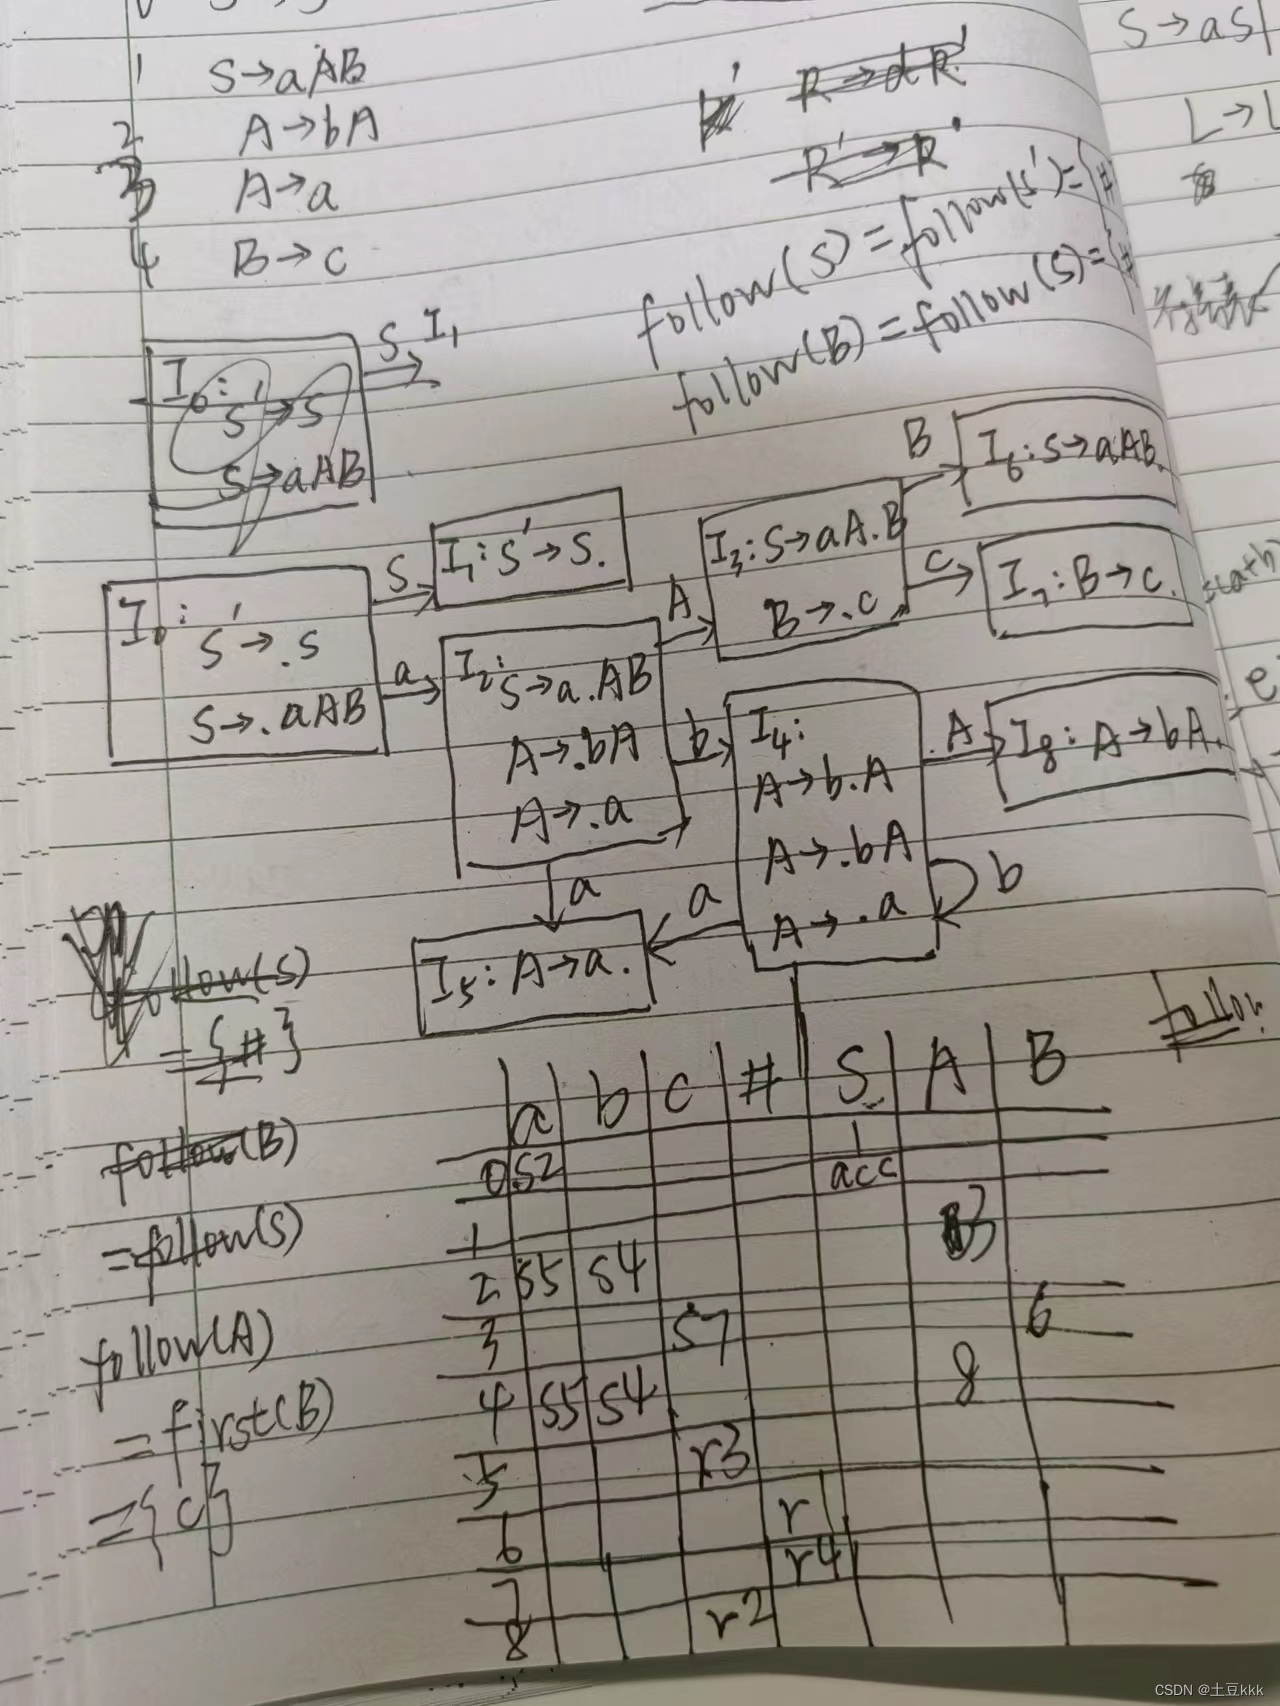 1 S→aAB
2 A→bA
3 A→a
4 B→c
R→dR'
R'→R
S→aS
L→L
follow(S)=follow(S')={#
follow(B)=follow(S)={#
I₀: S'→S
S→aAB
S I₁
I₀: S'→.S
S→.aAB
S
I₁: S'→S.
a
I₂: S→a.AB
A→.bA
A→.a
A
I₃: S→aA.B
B→.c
B
I₆: S→aAB.
c
I₇: B→c.
b
I₄:
A→b.A
A→.bA
A→.a
A
I₈: A→bA.
b
a
a
I₅: A→a.
follow(S)
={#}
follow(B)
=follow(S)
follow(A)
=first(B)
={c}
follow
a b c # S A B
0 S2 1
acc
1
2 S5 S4 3
3 S7 6
4 S5 S4 8
5 r3
6 r1
7 r4
8 r2
CSDN @土豆kkk